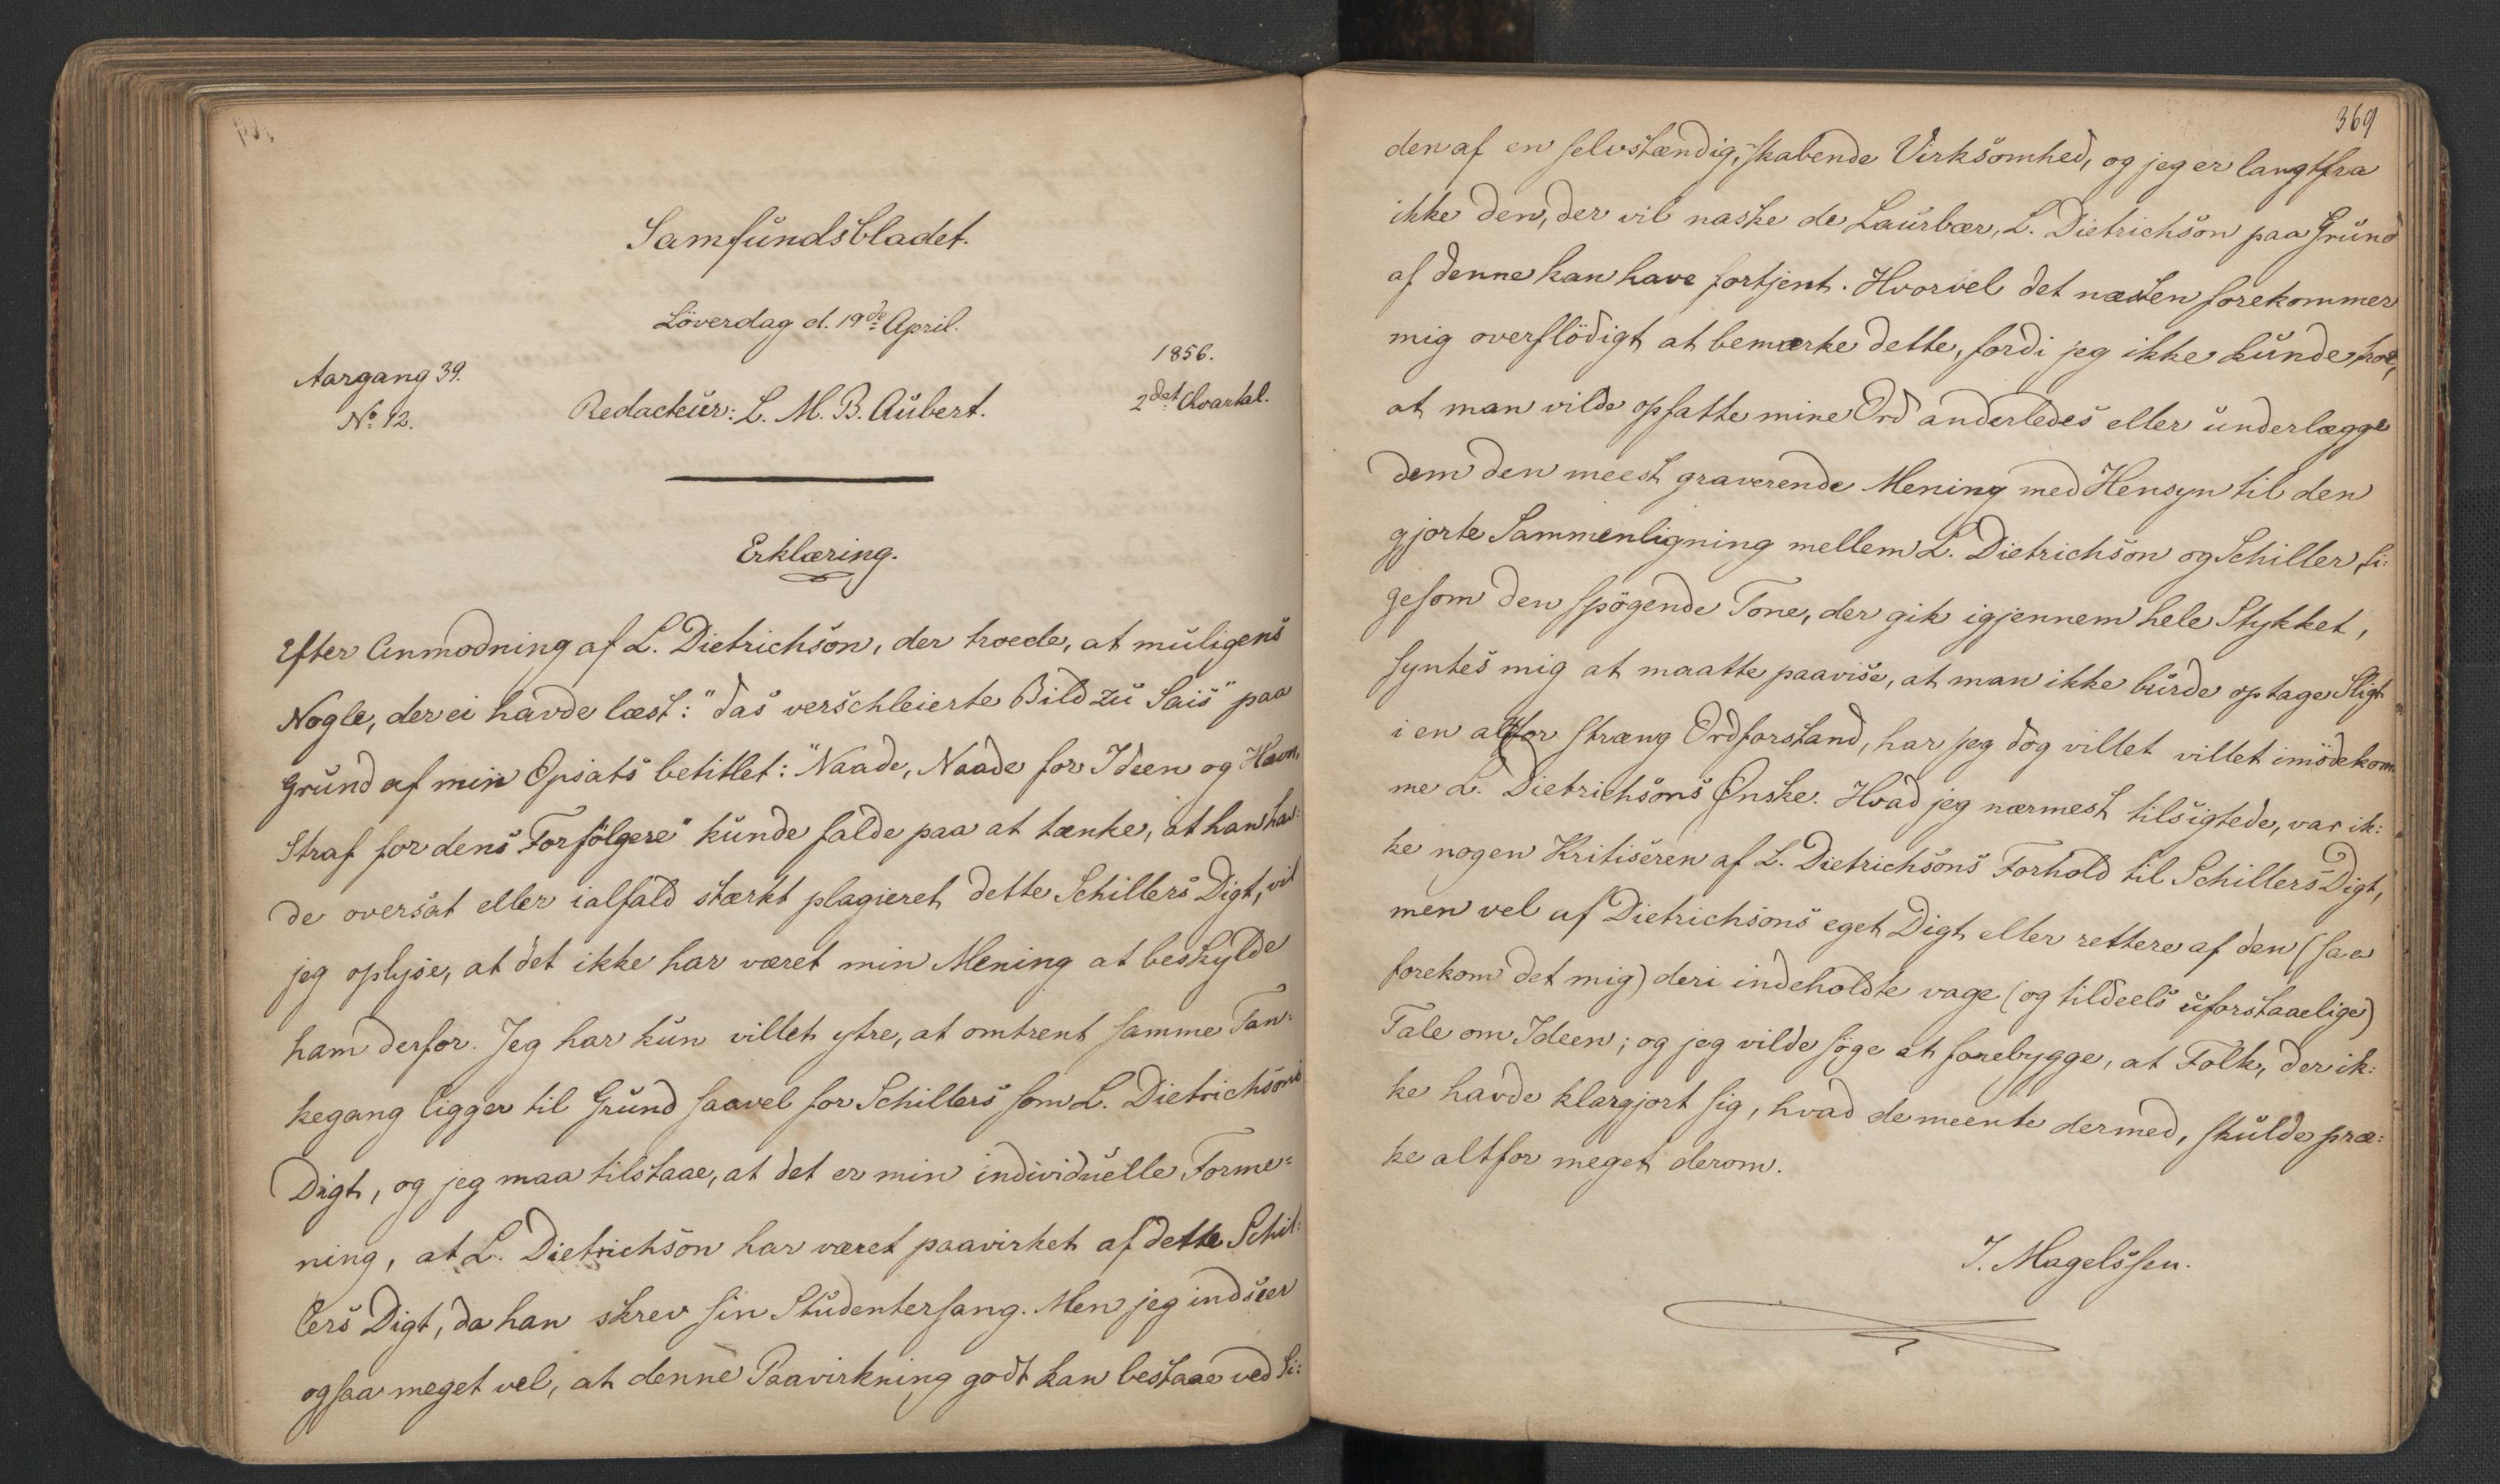 Samfundsbladet.
Löverdag d. 19de April.
Aargang 39.
No 12.
Redacteur: L. M. B. Aubert.
1856.
2det Qvartal.
Erklæring.
Efter Anmodning af L. Dietrichson, der troede, at muligens
Nogle, der ei havde læst: "das verschleierte Bild zu Sais" paa
Grund af min Opsats betitlet: "Naade, Naade for Ideen og Hævn,
Straf for dens Forfölgere" kunde falde paa at tænke, at han hav:
de oversat eller ialfald stærkt plagieret dette Schillers Digt, vil
jeg oplyse, at det ikke har været min Mening at beskylde
ham derfor. Jeg har kun villet ytre, at omtrent samme Tan:
kegang ligger til Grund saavel for Schillers som L. Dietrichsons
Digt, og jeg maa tilstaae, at det er min individuelle Forme:
ning, at L. Dietrichson har været paavirket af dette Schil:
lers Digt, da han skrev sin Studentersang. Men jeg indseer
ogsaa meget vel, at denne Paavirkning godt kan bestaae ved Si:
369
den af en selvstændig, skabende Virksomhed, og jeg er langtfra
ikke den, der vil naske de Laurbær, L. Dietrichson paa Grund
af denne kan have fortjent. Hvorvel det næsten forekommer
mig overflödigt at bemærke dette, fordi jeg ikke kunde troe,
at man vilde opfatte mine Ord anderledes eller underlægge
dem den meest graverende Mening med Hensyn til den
gjorte Sammenligning mellem L. Dietrichson og Schiller, li:
gesom den spögende Tone, der gik igjennem hele Stykket,
syntes mig at maatte paavise, at man ikke burde optage Sligt
i en altfor stræng Ordforstand, har jeg dog villet villet imödekom
me L. Dietrichsons Ønske. Hvad jeg nærmest tilsigtede, var ik:
ke nogen Kritiseren af L. Dietrichsons Forhold til Schillers Digt,
men vel af Dietrichsons eget Digt eller rettere af den (saa
forekom det mig) deri indeholdte vage (og tildeels uforstaaelige)
Tale om Ideen; og jeg vilde söge at forebygge, at Folk, der ik:
ke havde klargjort sig, hvad de meente dermed, skulde præ:
ke altfor meget derom.
J. Magelssen.